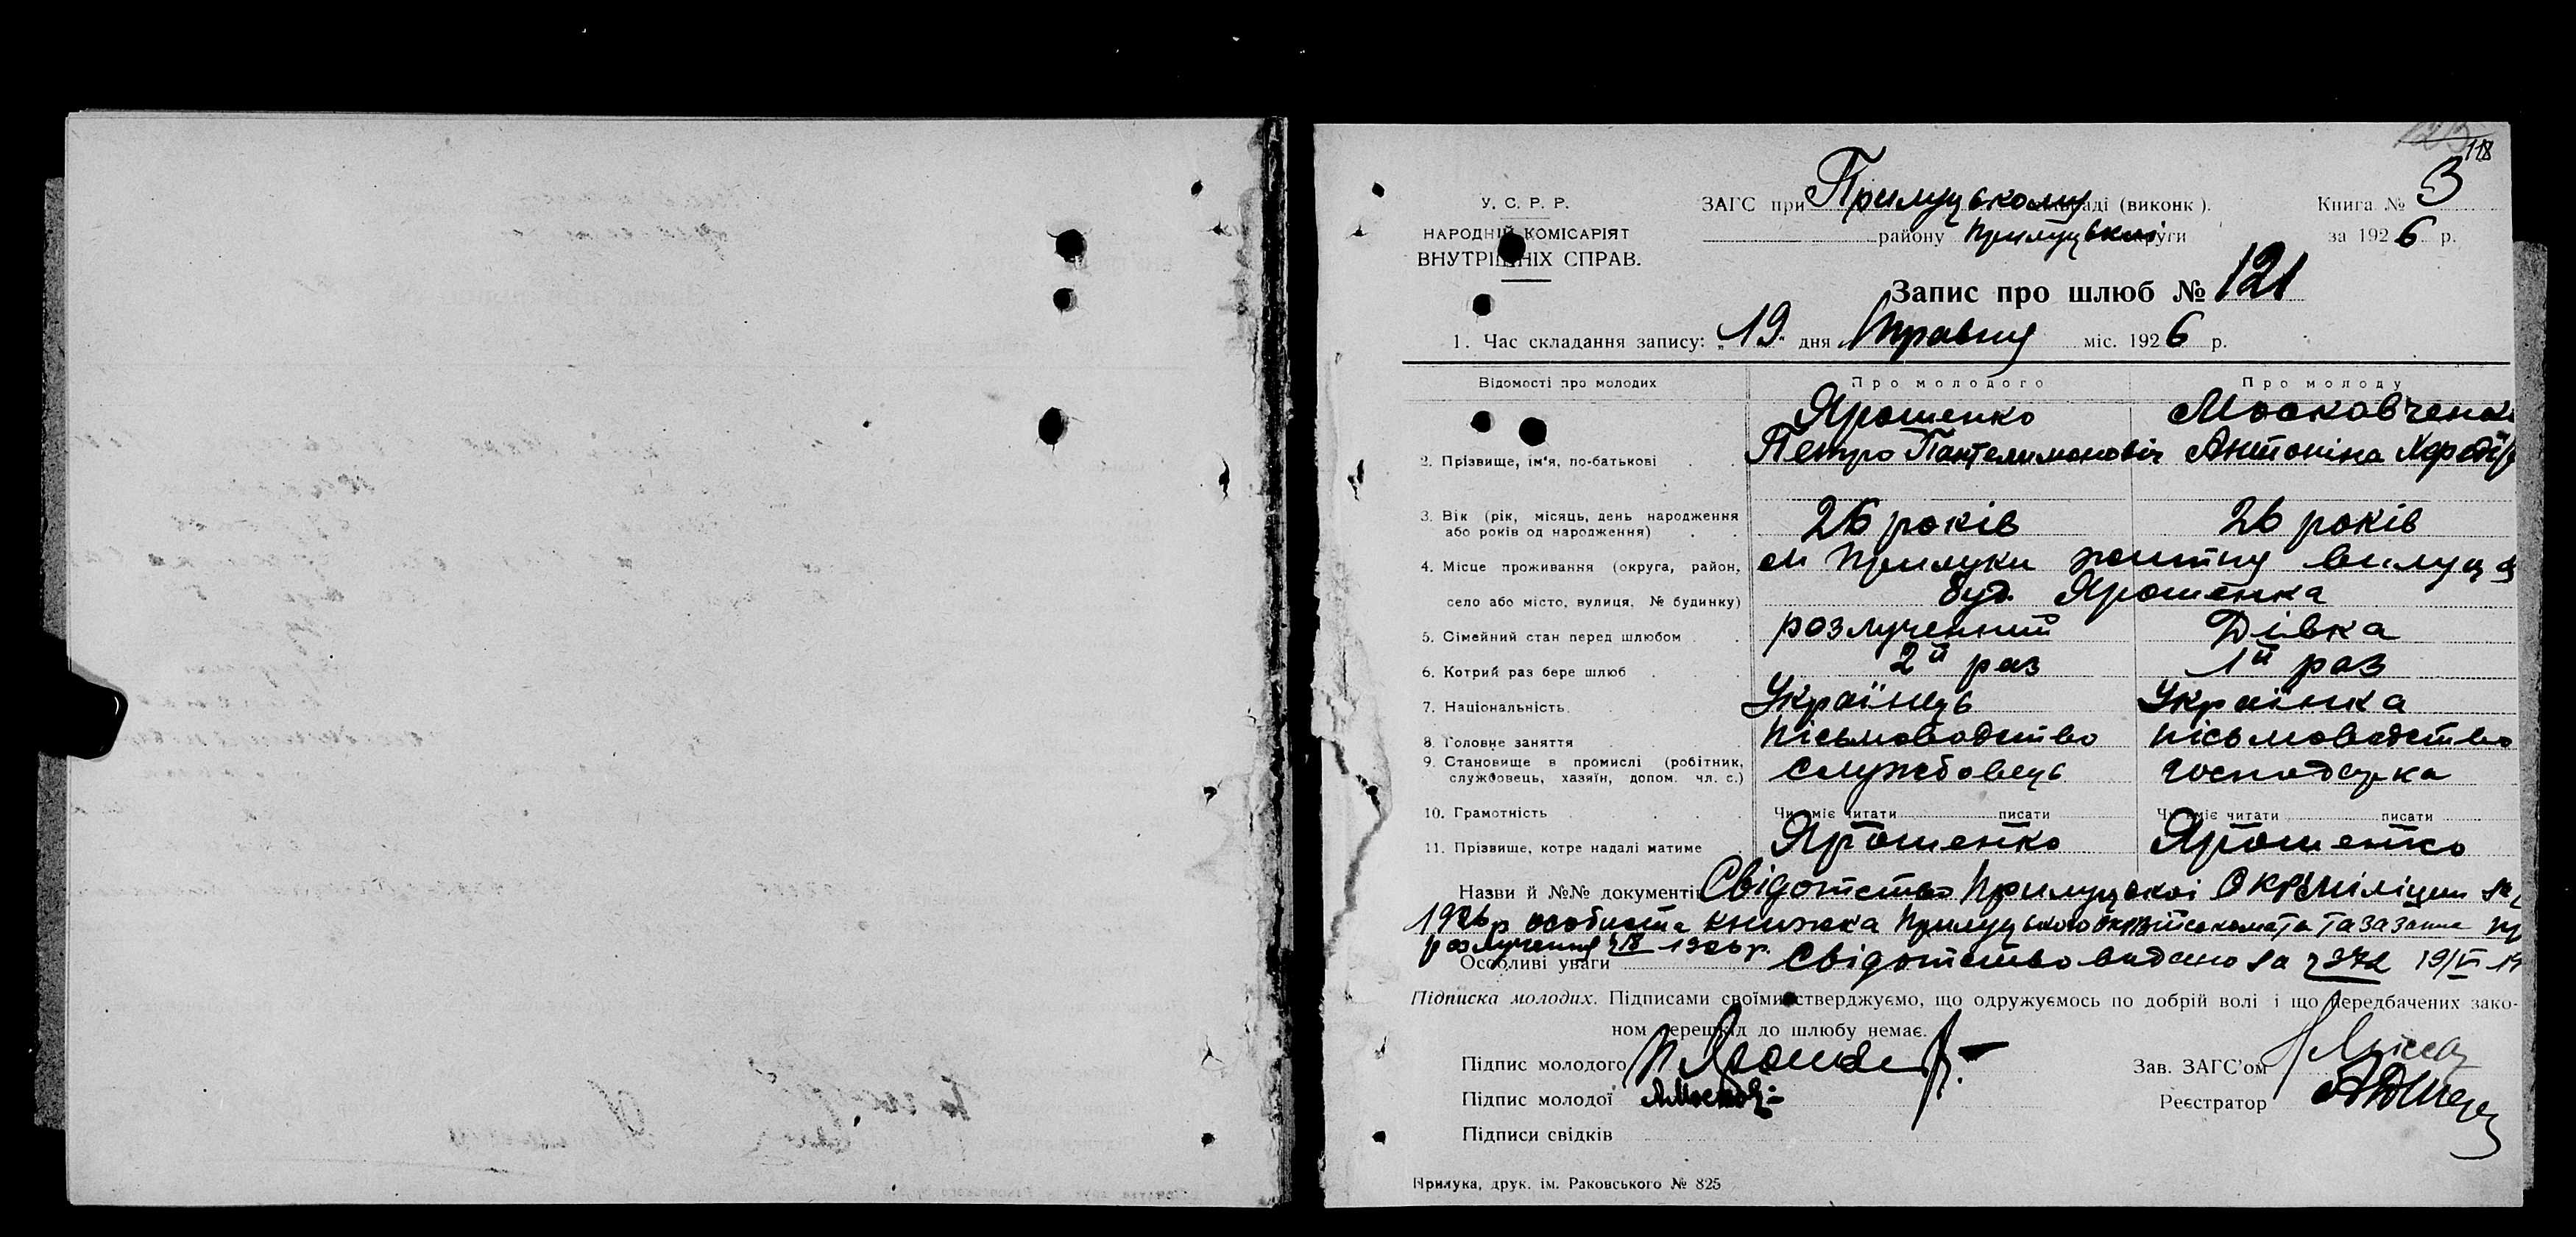 118
У. С. Р. Р.
НАРОДНІЙ КОМІСАРІЯТ
ВНУТРІШНІХ СПРАВ.
ЗАГС при Прилуцькому раді (виконк).
району Прилуцької округи
Книга № 3
за 1926 р.
Запис про шлюб № 121
1. Час складання запису: „19" дня Травня міс. 1926 р.
Відомості про молодих
Про молодого
Про молоду
2. Прізвище, ім'я, по-батькові
Ярошенко
Петро Пантелимонович
Москавченк
Антоніна
3. Вік (рік, місяць, день народження
або років од народження)
26 років
26 років
4. Місце проживання (округа, район,
село або місто, вулиця, № будинку)
м Прилуки
буд. Ярошенка
5. Сімейний стан перед шлюбом
розлученний
Дівка
6. Котрий раз бере шлюб
2й раз
1й раз
7. Національність
Українець
Українка
8. Головне заняття
пісьмоводство
пісьмоводство
9. Становище в промислі (робітник,
службовець, хазяїн, допом. чл. с.)
службовець
господарка
10. Грамотність
Чи вміє читати писати
Чи вміє читати писати
11. Прізвище, котре надалі матиме
Ярошенко
Ярошенко
Назви й №№ документів Свідотство Прилуцької Окрміліціи за
1926 р особиста книжка Прилуцького
розлучення 1926 р.
Особливі уваги Свідотство видано за 19/VI 19
Підписка молодих. Підписами своїми стверджуємо, що одружуємось по добрій волі і що передбачених зако-
ном перешкод до шлюбу немає.
Підпис молодого
Зав. ЗАГС'ом
Підпис молодої
Реєстратор
Підписи свідків
Прилука, друк. ім. Раковського № 825